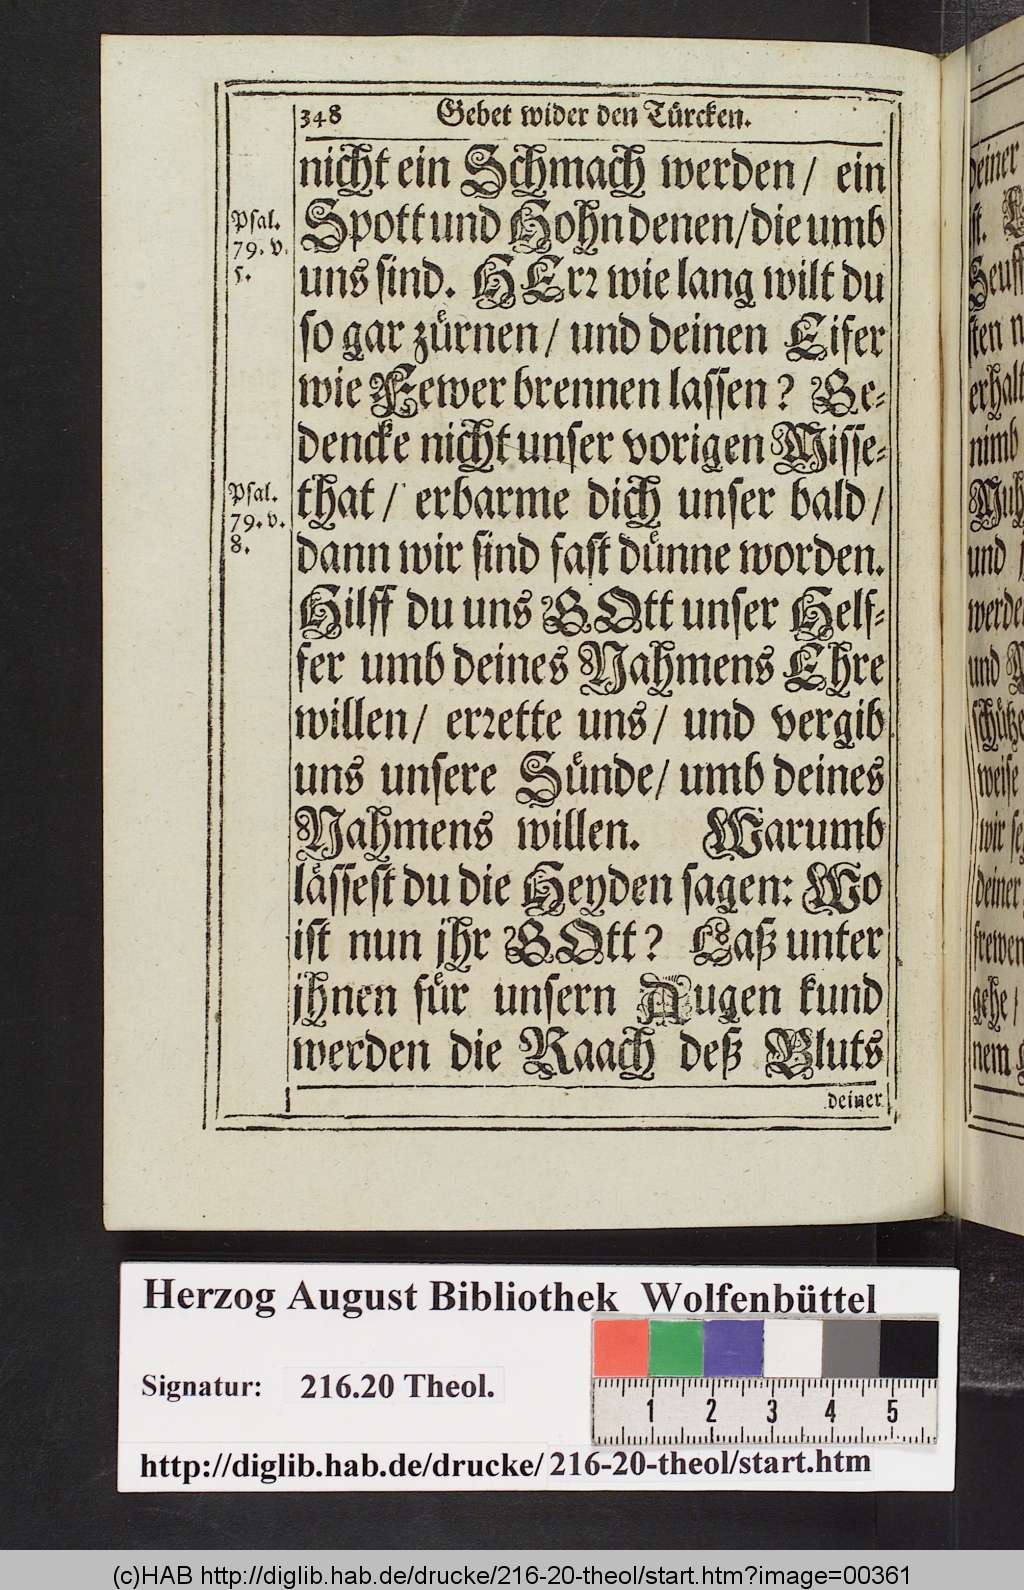 348 Gebet wider den Türcken.
nicht ein Schmach werden / ein
Psal. 79. v. 5.
Spott und Hohn denen / die umb
uns sind. HErr wie lang wilt du
so gar zürnen / und deinen Eifer
wie Fewer brennen lassen? Ge-
dencke nicht unser vorigen Misse-
Psal. 79. v. 8.
that / erbarme dich unser bald /
dann wir sind fast dünne worden.
Hilff du uns GOtt unser Helf-
fer umb deines Nahmens Ehre
willen / errette uns / und vergib
uns unsere Sünde / umb deines
Nahmens willen. Warumb
lässest du die Heyden sagen: Wo
ist nun jhr GOtt? Laß unter
jhnen für unsern Augen kund
werden die Raach deß Bluts
deiner
deiner
erhalt
nimb
und
und
weise
wir
deiner
gehe /
Herzog August Bibliothek Wolfenbüttel
Signatur: 216.20 Theol.
1 2 3 4 5
http://diglib.hab.de/drucke/216-20-theol/start.htm
(c)HAB http://diglib.hab.de/drucke/216-20-theol/start.htm?image=00361